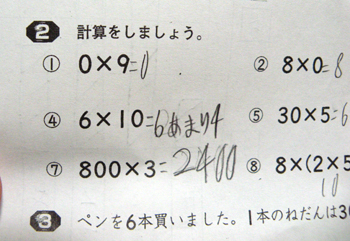 2 計算をしましょう。
① 0×9=0 ② 8×0=8
④ 6×10=6あまり4 ⑤ 30×5=6
⑦ 800×3=2400 ⑧ 8×(2×5
10
3 ペンを6本買いました。1本のねだんは3